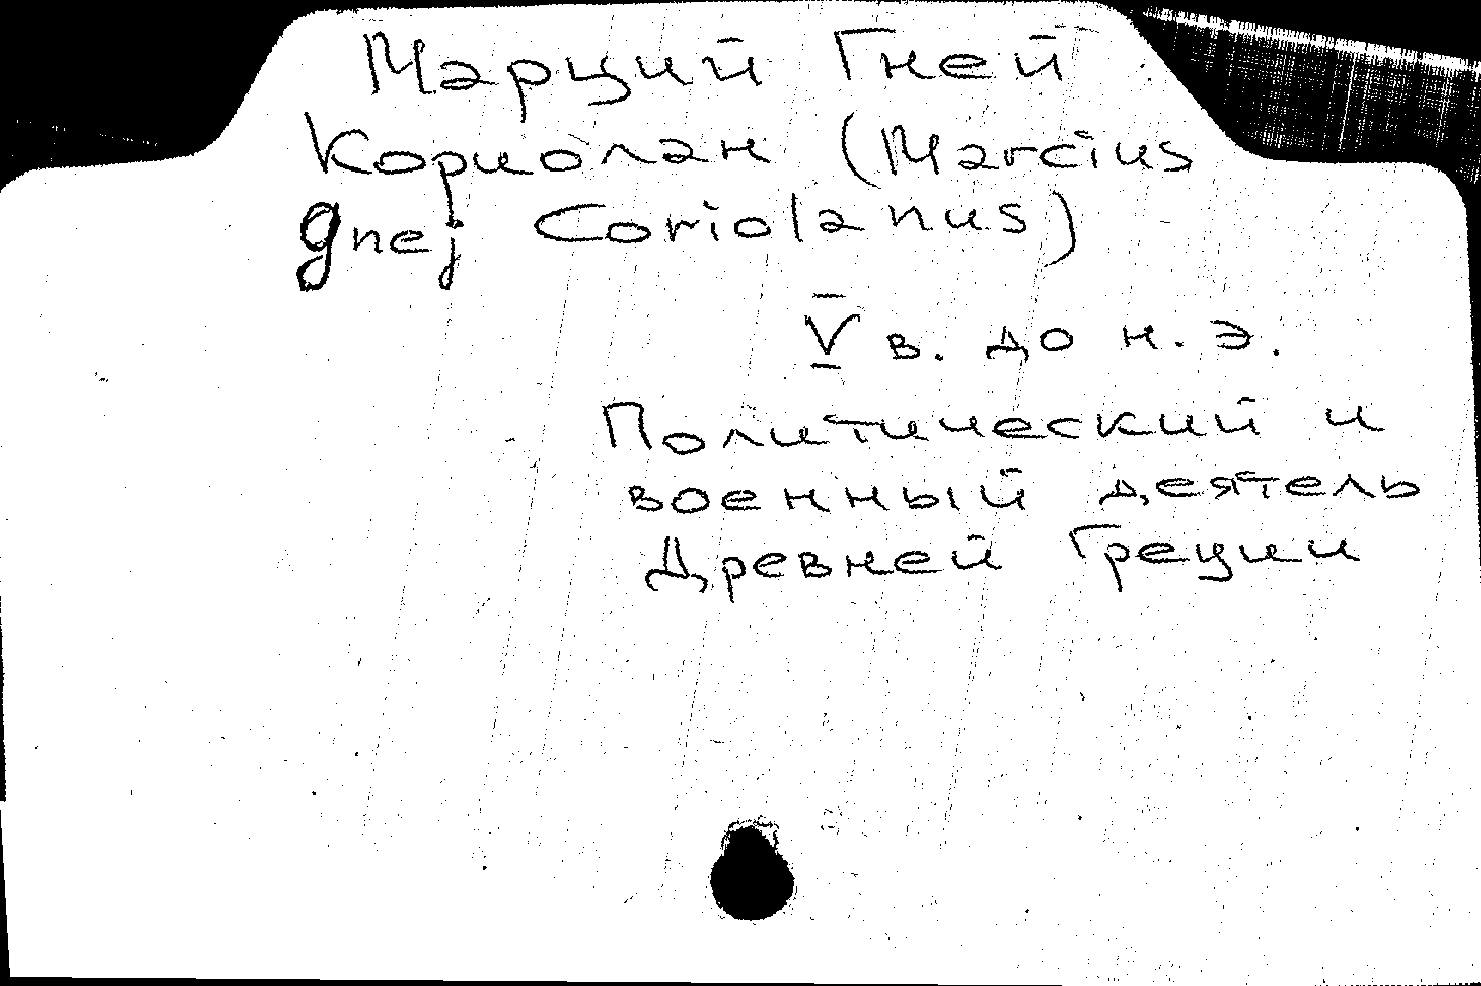 Марций Гней
Кориолан (Marcius
gnej Coriolanus)
V в. до н. э.
Политический и
военный деятель
Древней Греции